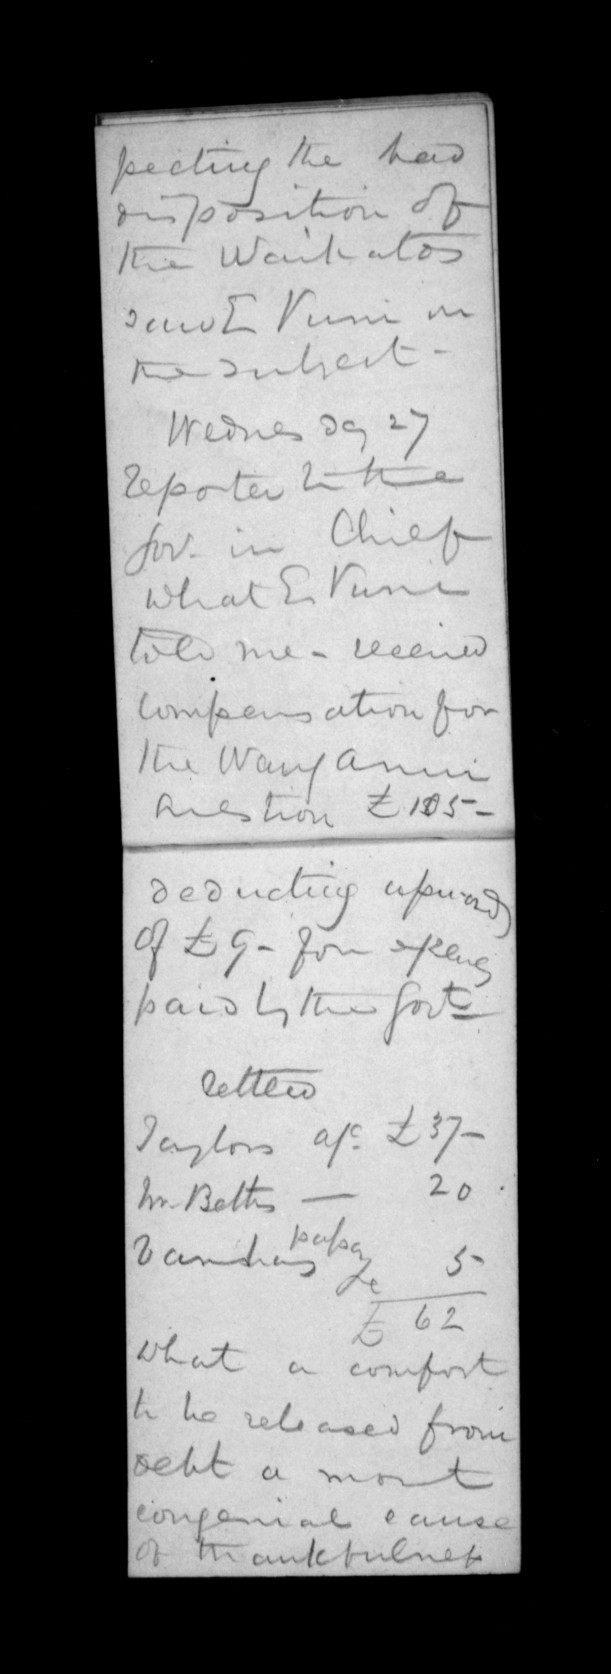 pecting the bad
disposition of
the Waikatos
saw E Vuni on
the subject -
Wednesday 27
reported to the
Gov. in Chief
what E Vuni
told me - received
compensation for
the Wanganui
question £185 -
deducting upwards
of £9 - for expenses
paid by the Govt
settled
Taylors a/c £37 -
Mr Betts — 20
papa
5
£ 62
What a comfort
to be released from
debt a most
congenial cause
of thankfulness